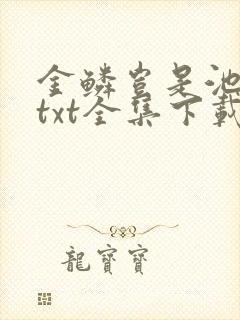 金鳞岂是池
txt全集下载
龍寶寶